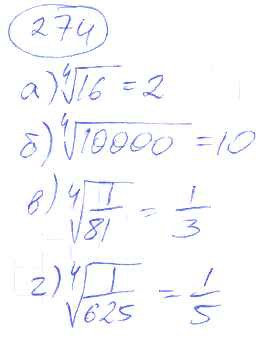 274
а) ⁴√16 = 2
б) ⁴√10000 = 10
в) ⁴√(1/81) = 1/3
г) ⁴√(1/625) = 1/5